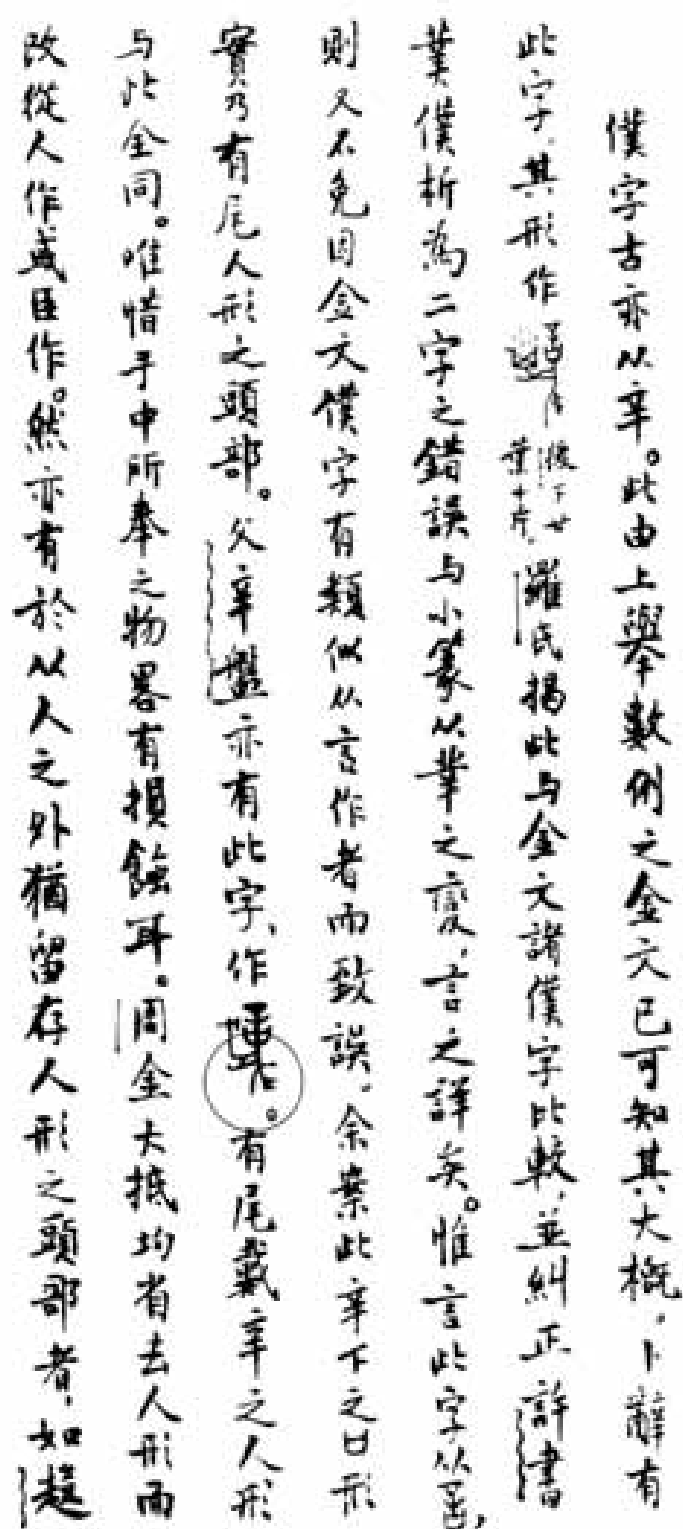 僕字古亦从辛。此由上舉數例之金文已可知其大概，卜辭有
此字，其形作後下廿葉十片，羅氏揭此与金文諸僕字比較，並糾正許書
菐僕析為二字之錯誤与小篆从菐之變，言之詳矣。惟言此字从䇂，
則又不免因金文僕字有類似从言作者而致誤，余案此辛下之凵形
實乃有尾人形之頭部。父辛盤亦有此字，作。有尾戴辛之人形
与此全同。唯惜手中所奉之物畧有損蝕耳。周金大抵均省去人形而
改從人作或臣作。然亦有於从人之外猶留存人形之頭部者，如趞